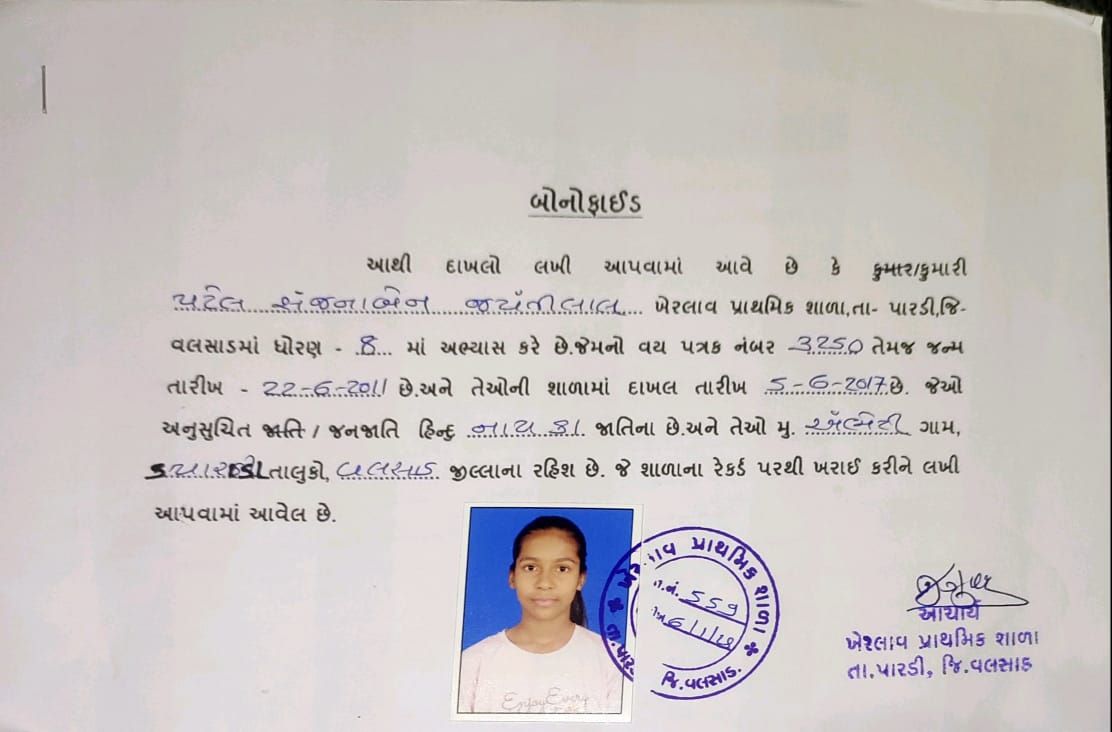 બોનોફાઈડ
આથી દાખલો લખી આપવામાં આવે છે કે કુમાર/કુમારી
પટેલ સંજનાબેન જયંતીલાલ ખેરલાવ પ્રાથમિક શાળા,તા- પારડી,જિ-
વલસાડમાં ધોરણ - 8 માં અભ્યાસ કરે છે.જેમનો વય પત્રક નંબર 3250 તેમજ જન્મ
તારીખ - 22-6-2011 છે.અને તેઓની શાળામાં દાખલ તારીખ 5-6-2017 છે. જેઓ
અનુસુચિત જાતિ / જનજાતિ હિન્દુ નાયકા જાતિના છે.અને તેઓ મુ. ગામ,
તાલુકો, વલસાડ જીલ્લાના રહિશ છે. જે શાળાના રેકર્ડ પરથી ખરાઈ કરીને લખી
આપવામાં આવેલ છે.
પ્રાથમિક શાળા
559
જિ.વલસાડ.
Enjoy Every
આચાર્ય
ખેરલાવ પ્રાથમિક શાળા
તા.પારડી, જિ.વલસાડ